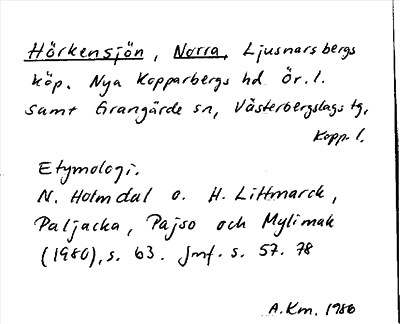 Hörkensjön, Norra, Ljusnarsbergs
köp. Nya Kopparbergs hd Ör. l.
samt Grangärde sn, Västerbergslags tg,
Kopp. l.
Etymologi.
N. Holmdal o. H. Littmarck,
Paljacka, Pajso och Mylimak
(1980), s. 63. Jmf. s. 57. 78
A.Km. 1986